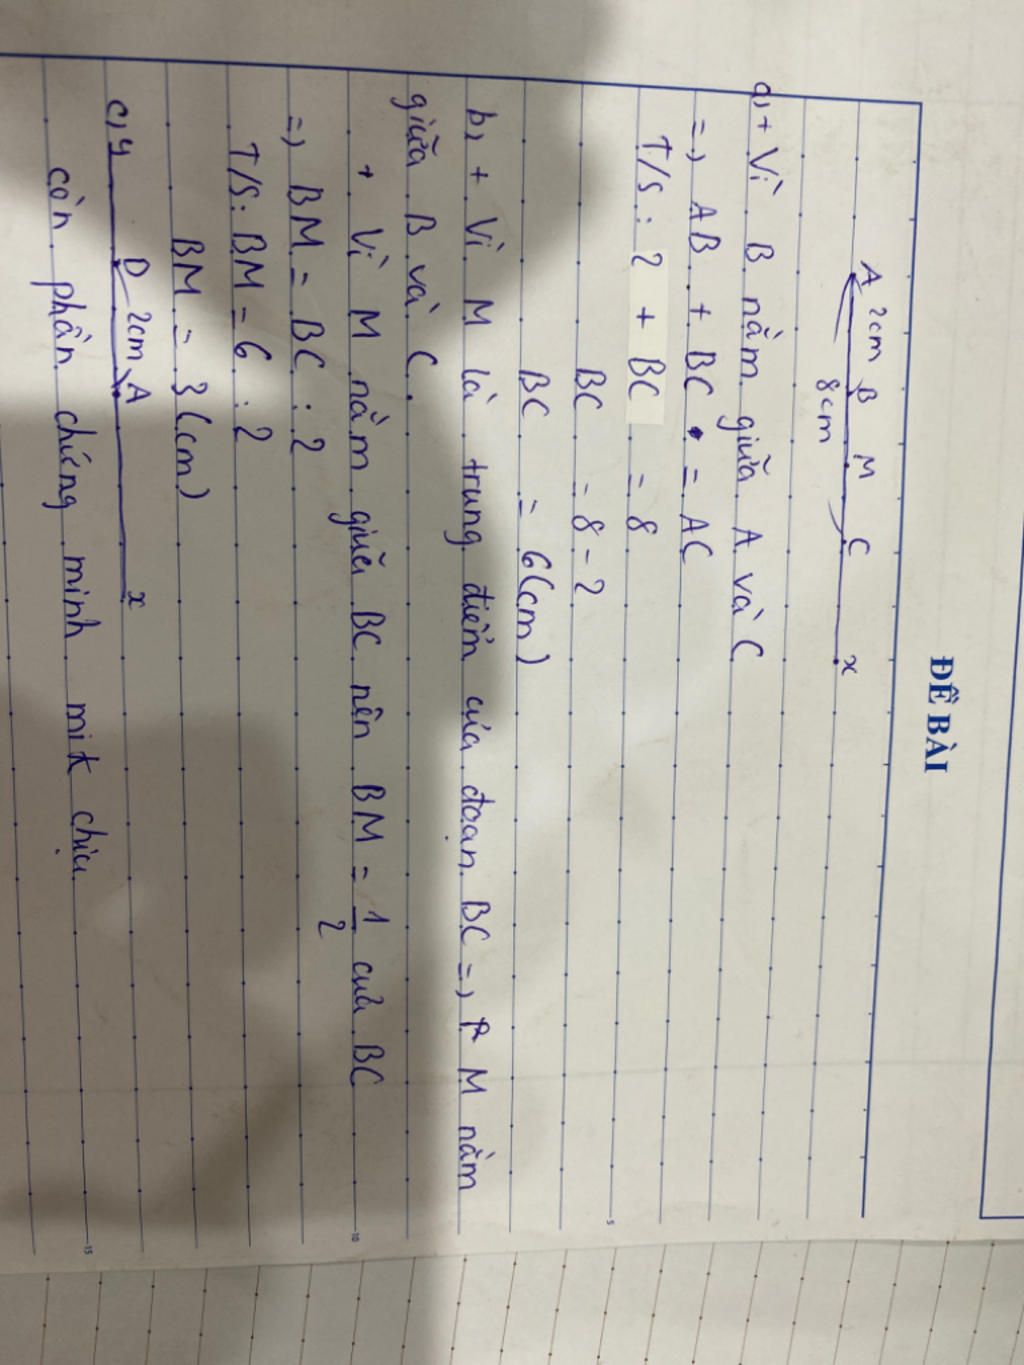 ĐỀ BÀI
A 2cm B M C x
8cm
a, + Vì B nằm giữa A và C
=, AB + BC = AC
T/S : 2 + BC = 8
BC = 8 - 2
BC = 6(cm)
b, + Vì M là trung điểm của đoạn BC =, M nằm
giữa B và C.
+ Vì M nằm giữa BC nên BM = 1/2 của BC
=, BM = BC : 2
T/S : BM = 6 : 2
BM = 3 (cm)
c, y D 2cm A x
còn phần chứng minh mik chịu
5
10
15